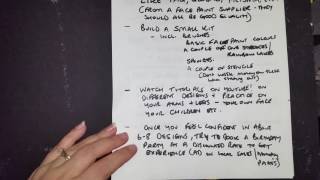 (FROM A FACE PAINT SUPPLIER - THEY
SHOULD ALL BE GOOD QUALITY)
- BUILD A SMALL KIT
- INCL. BRUSHES
BASIC FACE PAINT COLOURS
A COUPLE OF ONE STROKES/
RAINBOW CAKES
SPONGES
A COUPLE OF STENCILS
- WATCH TUTORIALS ON YOUTUBE ON
DIFFERENT DESIGNS + PRACTICE ON
YOUR ARMS + LEGS - YOUR OWN FACE
YOUR CHILDREN ETC.
- ONCE YOU FEEL CONFIDENT IN ABOUT
6-8 DESIGNS, TRY TO BOOK A BIRTHDAY
PARTY AT A DISCOUNTED RATE TO GET
EXPERIENCE (AD IN LOCAL SALES/
PAGES)